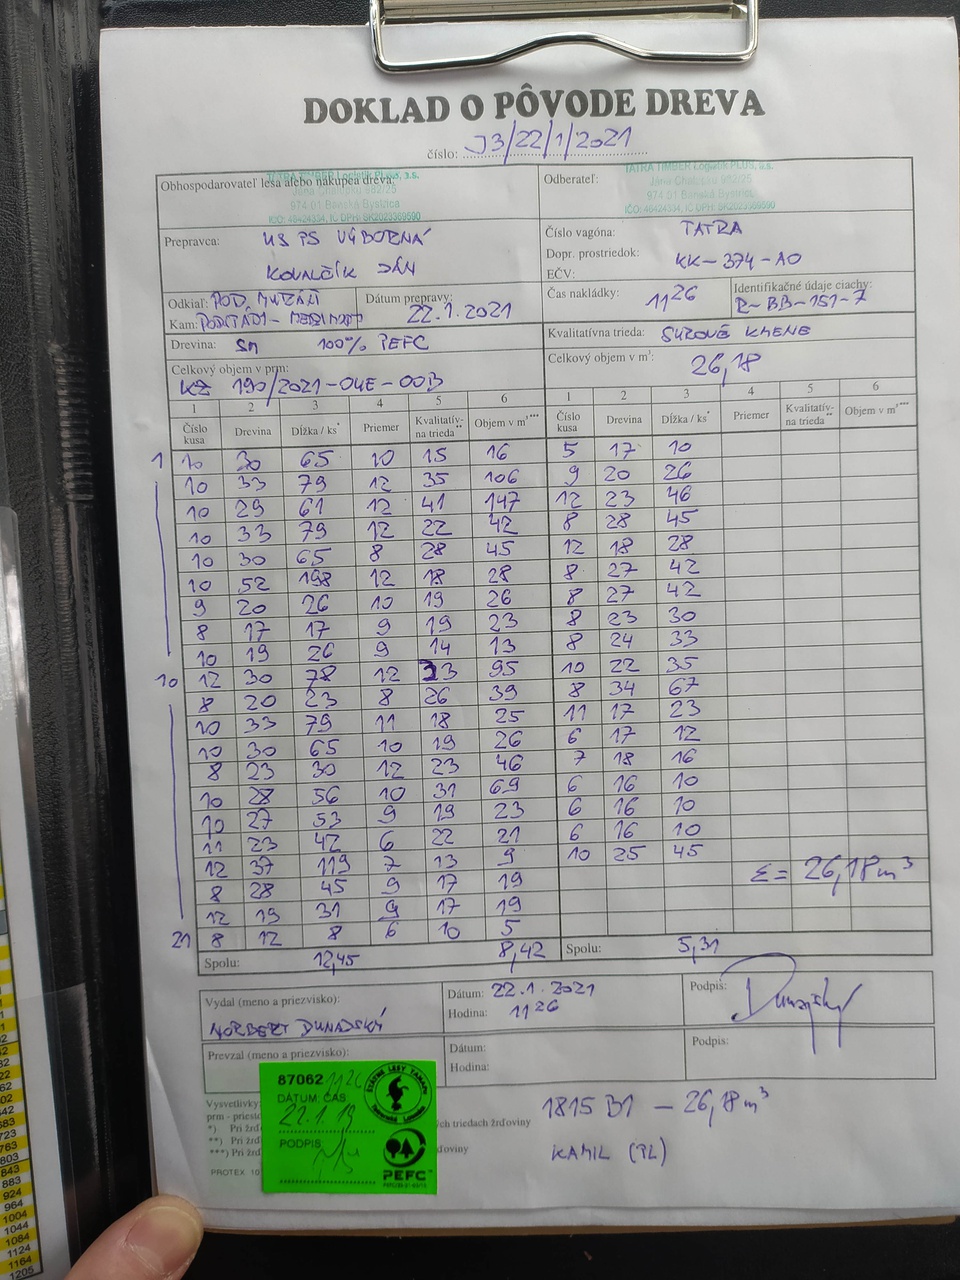 DOKLAD O PÔVODE DREVA
číslo: J3/22/1/2021
Obhospodarovateľ lesa alebo nákupca dreva:
TATRA TIMBER Logistik PLUS, s.s.
974 01 Banská Bystrica
IČO: 46424334, IČ DPH: SK2023369590
Odberateľ:
TATRA TIMBER Logistik PLUS, s.s.
974 01 Banská Bystrica
IČO: 46424334, IČ DPH: SK2023369590
Prepravca: VÝBORNÁ
KOVALČÍK JÁN
Číslo vagóna: TATRA
Dopr. prostriedok: KK-374-AO
EČV:
Odkiaľ: POD.
Kam:
Dátum prepravy: 22.1.2021
Čas nakládky: 11 26
Identifikačné údaje ciachy:
R-BB-151-7
Drevina: SM 100% PEFC
Kvalitatívna trieda: SUROVÉ KMENE
Celkový objem v prm:
KZ 190/2021-04E-00B
Celkový objem v m³: 26,18
1 2 3 4 5 6 1 2 3 4 5 6
Číslo kusa Drevina Dĺžka / ks* Priemer Kvalitatív-na trieda** Objem v m³*** Číslo kusa Drevina Dĺžka / ks* Priemer Kvalitatív-na trieda** Objem v m³***
1 10 30 65 10 15 16 5 17 10
10 33 79 12 35 106 9 20 26
10 29 61 12 41 147 12 23 46
10 33 79 12 22 42 8 28 45
10 30 65 8 28 45 12 18 28
10 52 198 12 18 28 8 27 42
9 20 26 10 19 26 8 27 42
8 17 17 9 19 23 8 23 30
10 19 26 9 14 13 8 24 33
10 12 30 78 12 33 95 10 22 35
8 20 23 8 26 39 8 34 67
10 33 79 11 18 25 11 17 23
10 30 65 10 19 26 6 17 12
8 23 30 12 23 46 7 18 16
10 28 56 10 31 69 6 16 10
10 27 53 9 19 23 6 16 10
11 23 42 6 22 21 6 16 10
12 37 119 7 13 9 10 25 45
8 28 45 9 17 19
Σ = 26,18 m³
12 19 31 9 17 19
21 8 12 8 6 10 5
Spolu: 12,45 8,42 Spolu: 5,31
Vydal (meno a priezvisko):
NORBERT DUNAJSKÝ
Dátum: 22.1.2021
Hodina: 11 26
Podpis: Dunajský
Prevzal (meno a priezvisko):
Dátum:
Hodina:
Podpis:
87062 1126
DÁTUM, ČAS
22.1.
PODPIS
PEFC
Vysvetlivky:
prm - priest
*) Pri žrď
**) Pri žrď
***) Pri žrď
ch triedach žrďoviny
ďoviny
PROTEX 10
1815 B1 - 26,18 m³
KAMIL (PL)
843
883
924
964
1004
1044
1084
1124
1164
1205